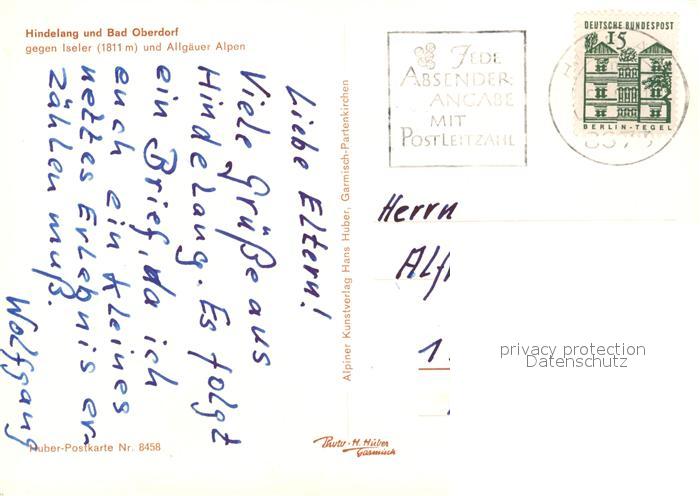 Hindelang und Bad Oberdorf
gegen Iseler (1811 m) und Allgäuer Alpen
Liebe Eltern!
Viele Grüße aus
Hindelang. Es folgt
ein Brief, da ich
euch ein kleines
nettes Erlebnis er-
zählen muß.
Wolfgang
Huber-Postkarte Nr. 8458
Alpiner Kunstverlag Hans Huber, Garmisch-Partenkirchen
Photo-H. Huber
Garmisch
JEDE
ABSENDER-
ANGABE
MIT
POSTLEITZAHL
DEUTSCHE BUNDESPOST
15
BERLIN-TEGEL
Herrn
Alf
1
privacy protection
Datenschutz